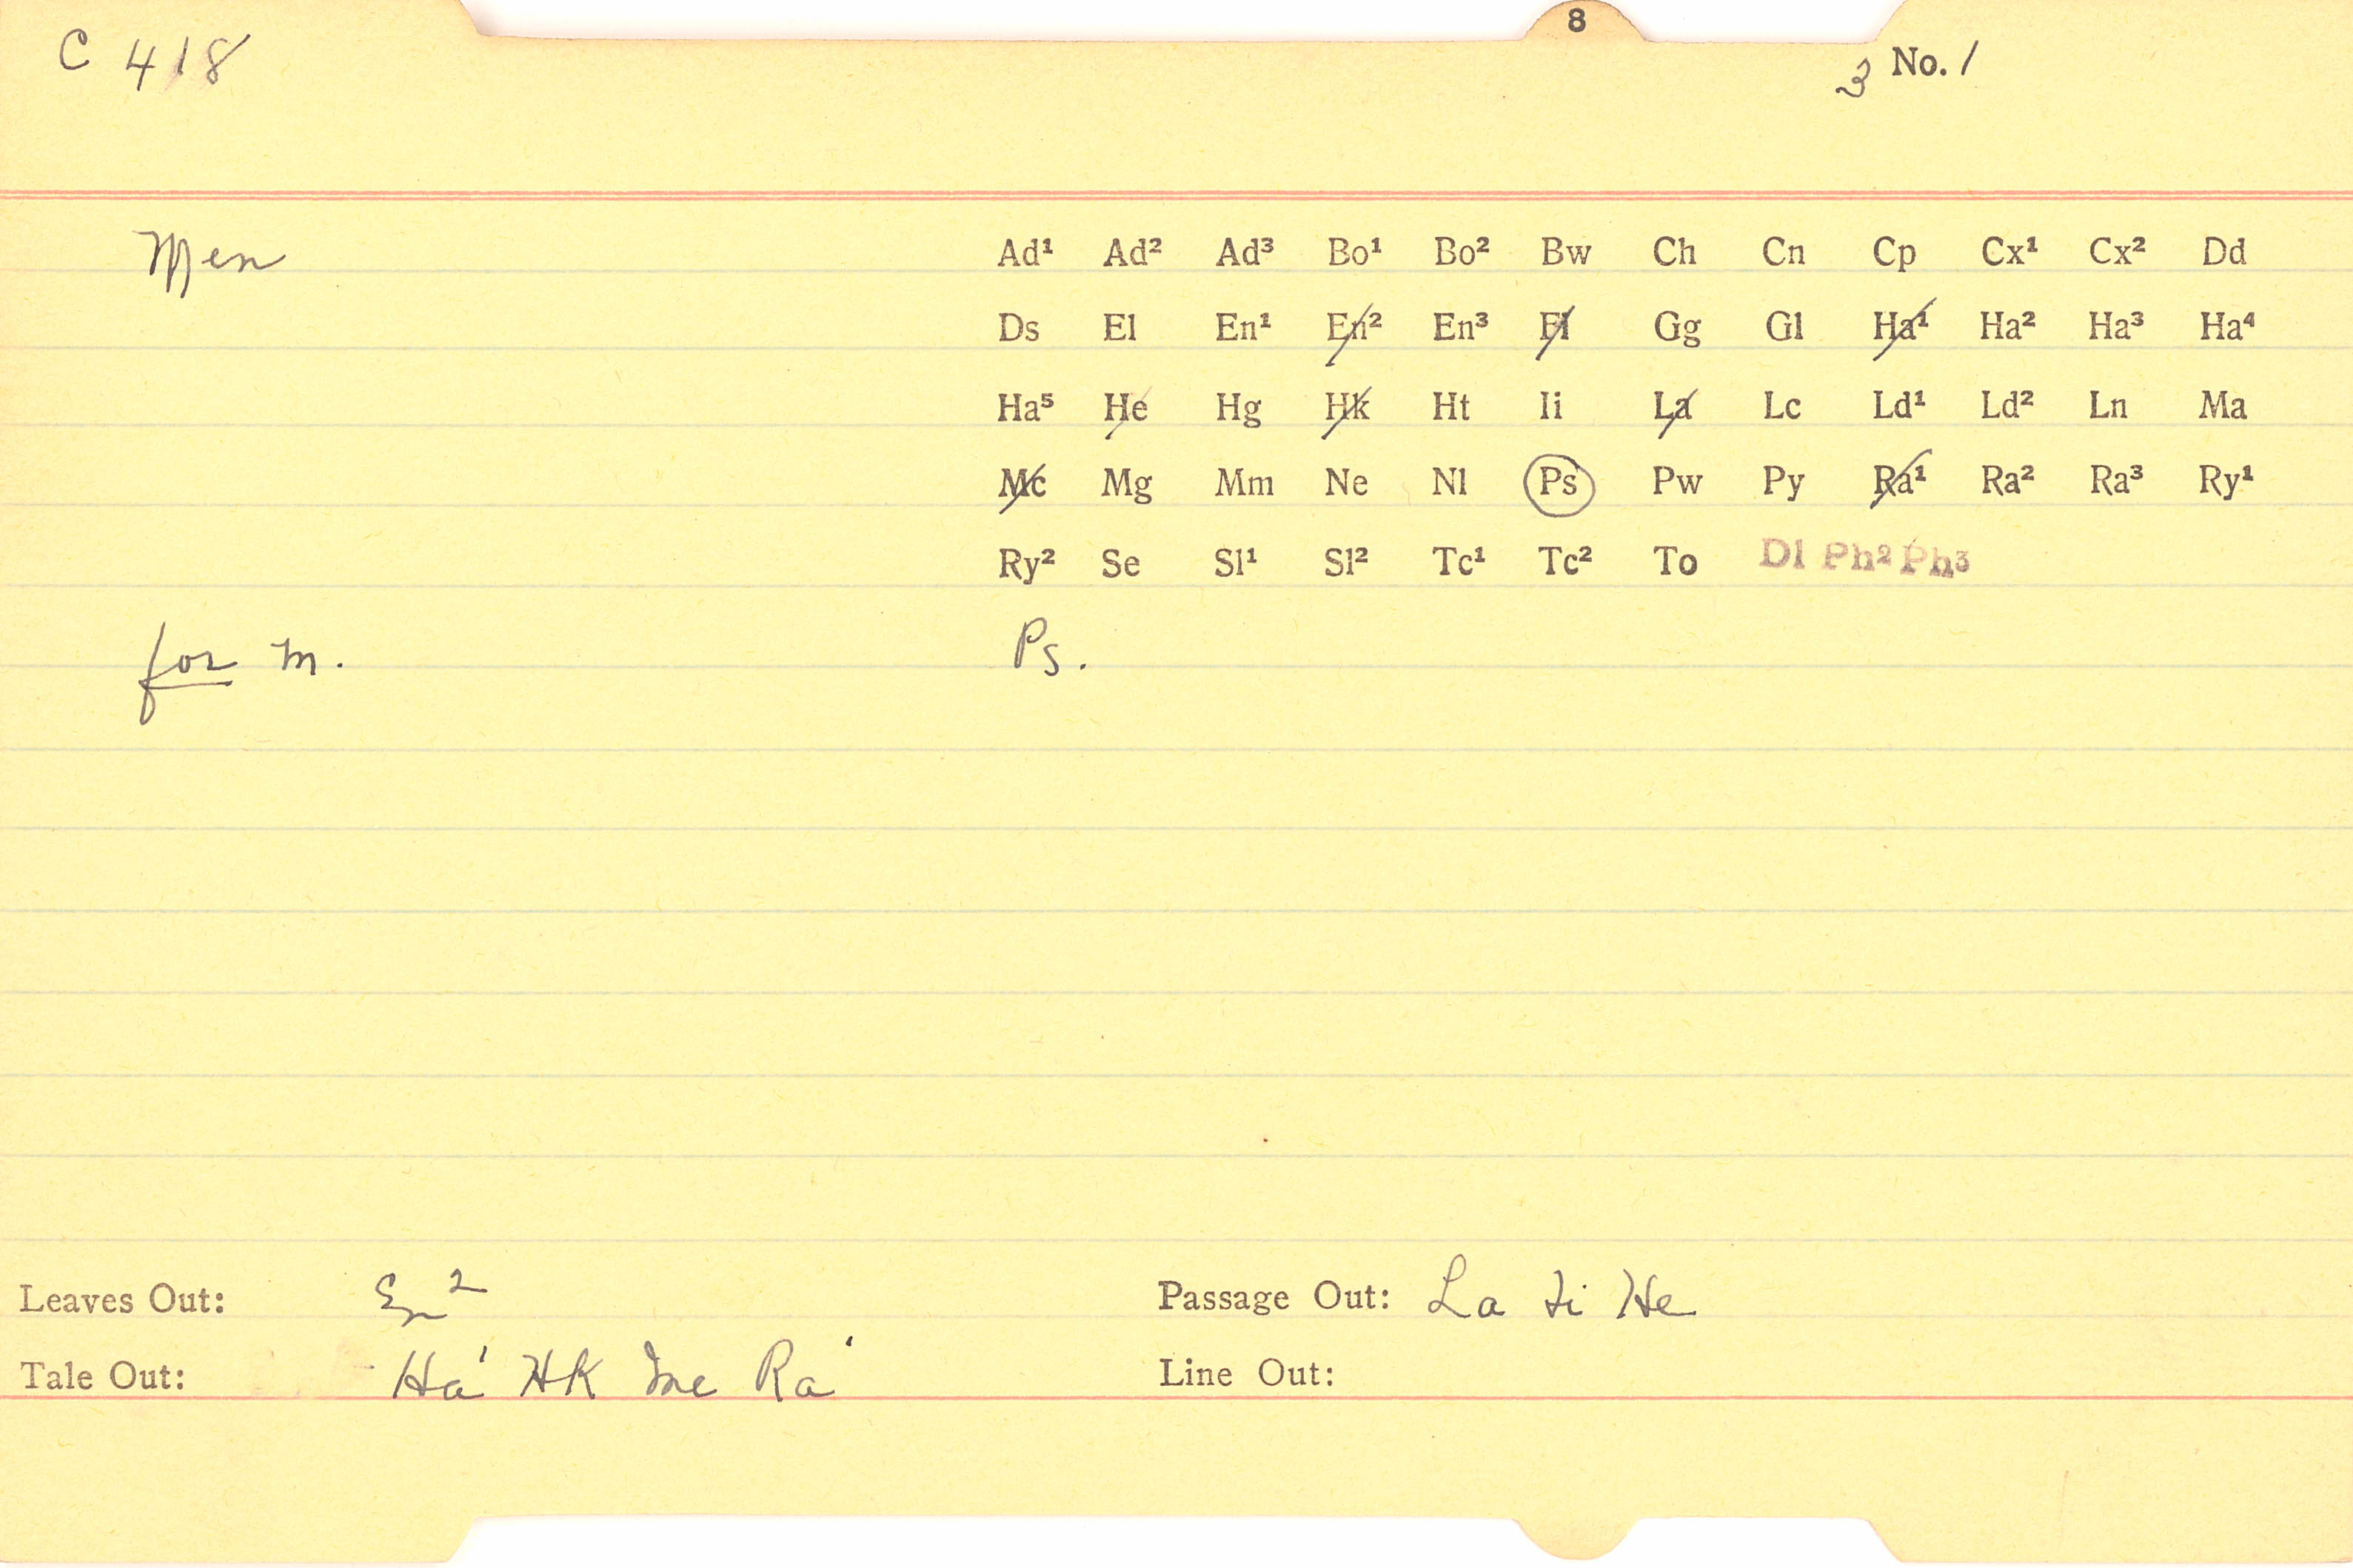 8
C 418
3 No. 1
Men Ad¹ Ad² Ad³ Bo¹ Bo² Bw Ch Cn Cp Cx¹ Cx² Dd
Ds El En¹ En² En³ Fi Gg Gl Ha¹ Ha² Ha³ Ha⁴
Ha⁵ He Hg Hk Ht Ii La Lc Ld¹ Ld² Ln Ma
Mc Mg Mm Ne Nl Ps Pw Py Ra¹ Ra² Ra³ Ry¹
Ry² Se Sl¹ Sl² Tc¹ Tc² To Dl Ph² Ph³
for m. Ps.
Leaves Out: En² Passage Out: La Fi He
Tale Out: Ha¹ Hk Mc Ra¹ Line Out: